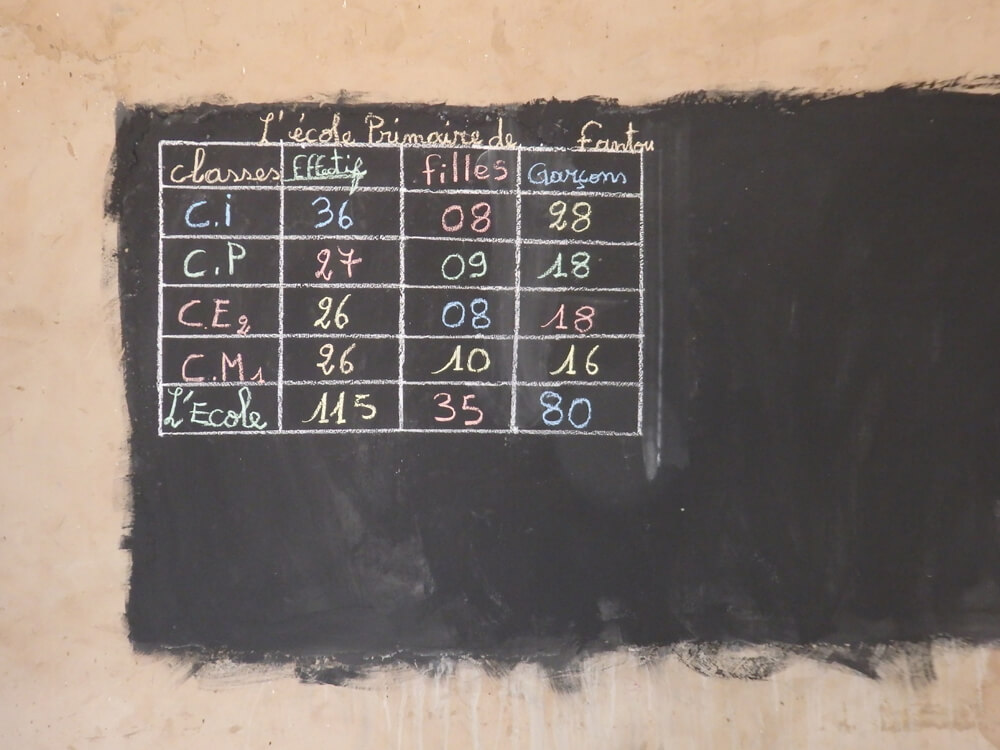 L'école Primaire de Fantou
Classes Effectif filles Garçons
C.I 36 08 28
C.P 27 09 18
C.E2 26 08 18
C.M1 26 10 16
L'Ecole 115 35 80